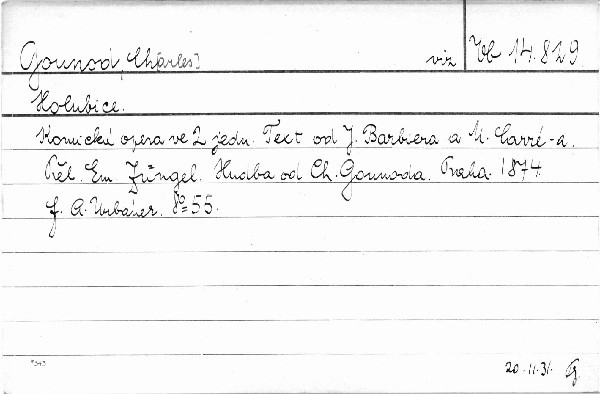 Gounod, Charles] viz Vb 14.829
Holubice.
Komická opera ve 2 jedn. Text od J. Barbiera a M. Carré-a.
Přel. Em. Züngel. Hudba od Ch. Gounoda. Praha. 1874
f. A. Urbánek. 8º 55.
20.11.31.